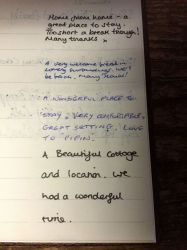 Home from home - a
great place to stay.
Too short a break though!
Many thanks
A very welcome break in
lovely surroundings. We'll
be back. Many
A WONDERFUL PLACE TO
STAY. VERY COMFORTABLE,
GREAT SETTING. LOVE
TO PIPIN.
A Beautiful Cottage
and location. We
had a wonderful
time.